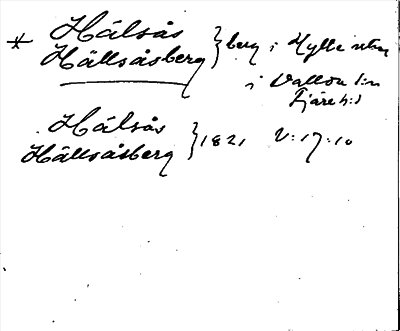 * Hålsås
Hällsåsberg } berg i Hylle utm
i Vallda s:n
Fjäre h:d
Hålsås
Hällsåsberg } 1821 V:17:10